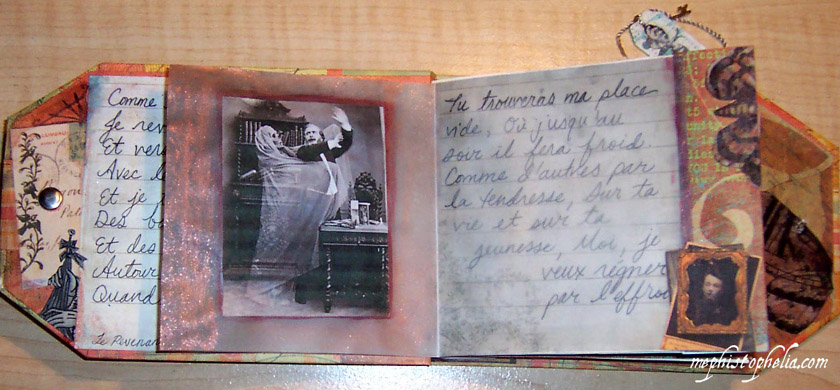 Comme
Je rev
Et vers
Avec l
Et je
Des b
Et des
Autour
Quand
Le Revenan
Tu trouveras ma place
vide, Où jusqu'au
soir il fera froid.
Comme d'autres par
la tendresse, Sur ta
vie et sur ta
jeunesse, Moi, je
veux régner
par l'effroi
mephistophelia.com